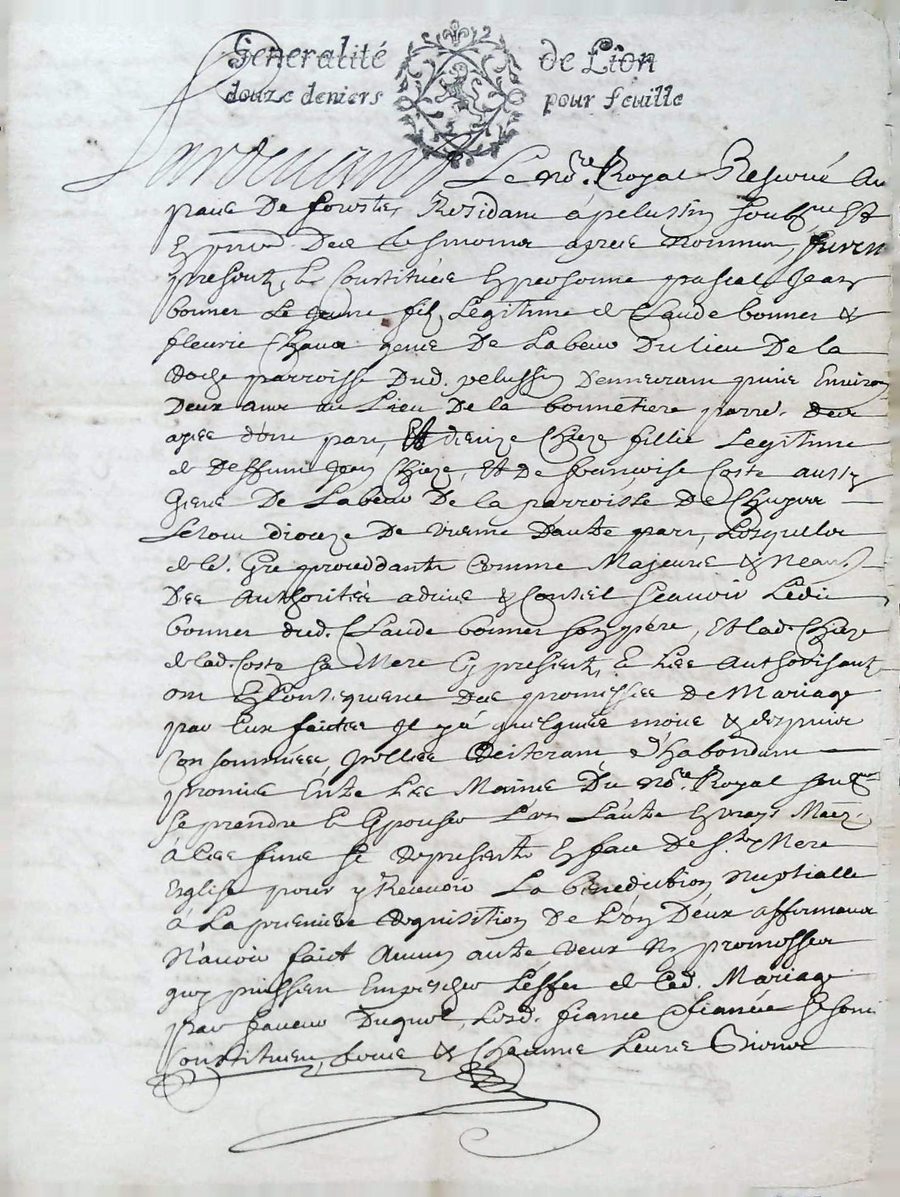 Generalité de Lion
douze deniers pour feuille
Pardevant Le no.re Royal Reservé Au
païs De forestz Residant à pelussin soubz.né Et
En pnce Des tesmoins apres nommes, furent
presentz, et Constitués En personne pascal Jean
bonnet Le jeune filz Legitime de Claude bonnet &
fleurie Chava gens De Labeur Du lieu De la
parroisse Dud. pelussin Demeurant Environ
Deux ans au Lieu De la bonnetiere parre.
d'une part, Et Chize fillie Legitime
de Deffunt Jean Chize, Et De françoise Coste aussy
Gens De Labeur De la parroisse De
dioceze De vienne D'autre part, Lesquelles
de Gré proceddants Comme Majeurs &
Des Authorités advis & Conseil sçavoir Ledit
bonnet dud. Claude bonnet son pere, Et lad. Chize
de lad. Coste sa Mere Cy presents, & Les Authorisant
ont En Consequence Des promesses De Mariage
par Eux faites Il y à quelques mois & despuis
Consommées, Reiterant d'habondant
promis Entre Les Mains Du no.re Royal
se prendre & Epouser L'un L'autre En vrays
à Ces fins se Representer En face De s.te Mere
Eglise pour y Recevoir La benediction Nuptialle
à La premiere Requisition De L'un D'eux affirmant
N'avoir faict Aucuns autre veux Ny promesses
quy puissent Empescher L'effet de Ced. Mariage
par faveur Duquel, Lesd. fiancé & fiancée se sont
Constitués, tous & Chacuns Leurs Biens